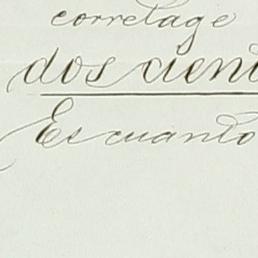 corretage
dos cient
Es cuanto